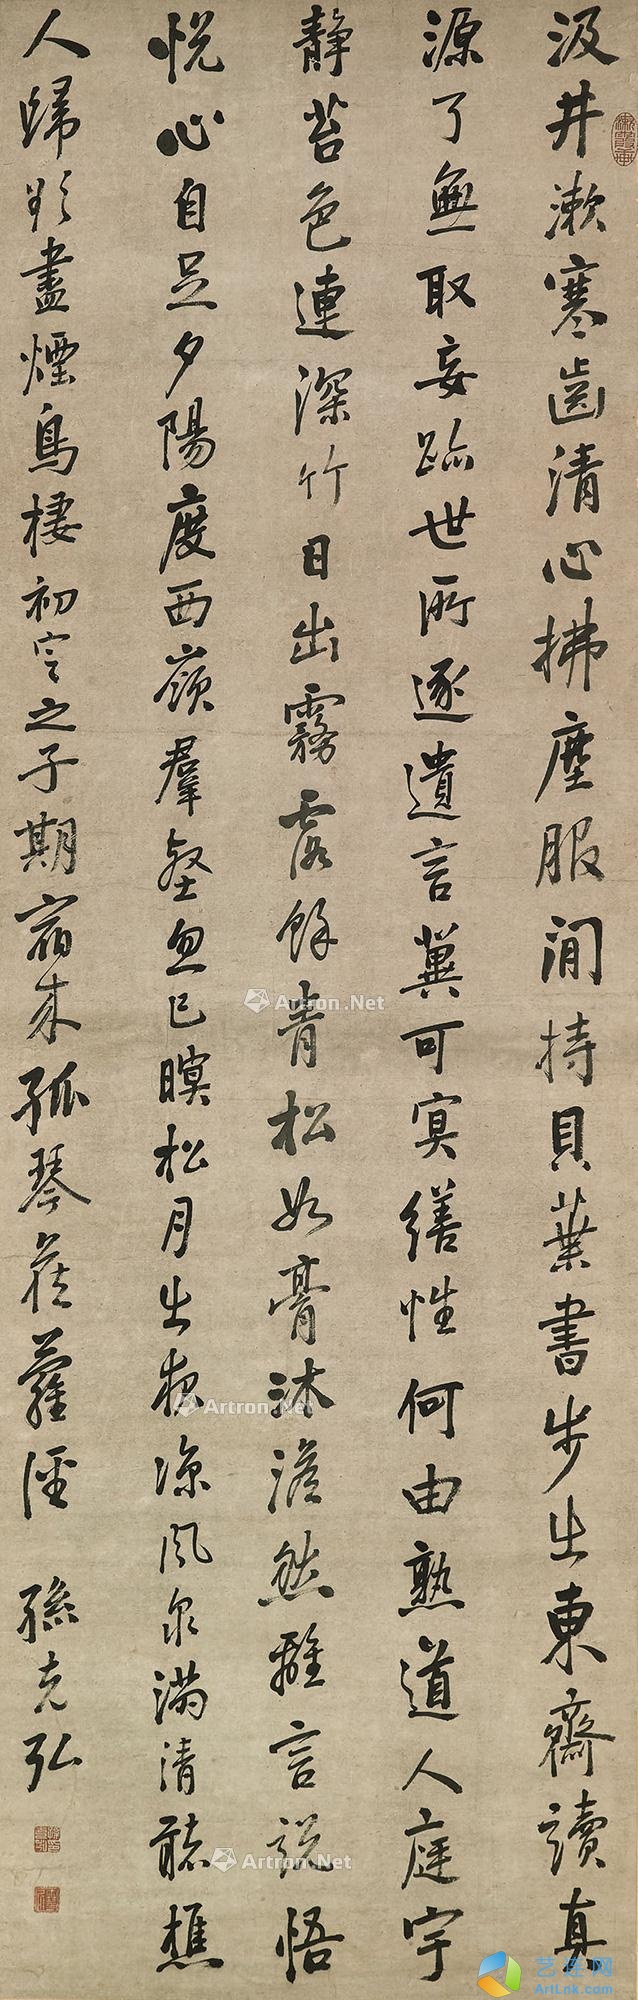 汲井漱寒齒清心拂塵服閒持貝葉書步出東齋讀真
源了無取妄跡世所逐遺言冀可冥繕性何由熟道人庭宇
靜苔色連深竹日出霧露餘青松如膏沐澹然離言說悟
悅心自足夕陽度西嶺羣壑忽已暝松月生夜涼風泉滿清聽樵
人歸欲盡煙鳥棲初定之子期宿來孤琴候蘿徑 孫克弘
Artron.Net
Artron.Net
Artron.Net
艺连网
ArtLnk.com